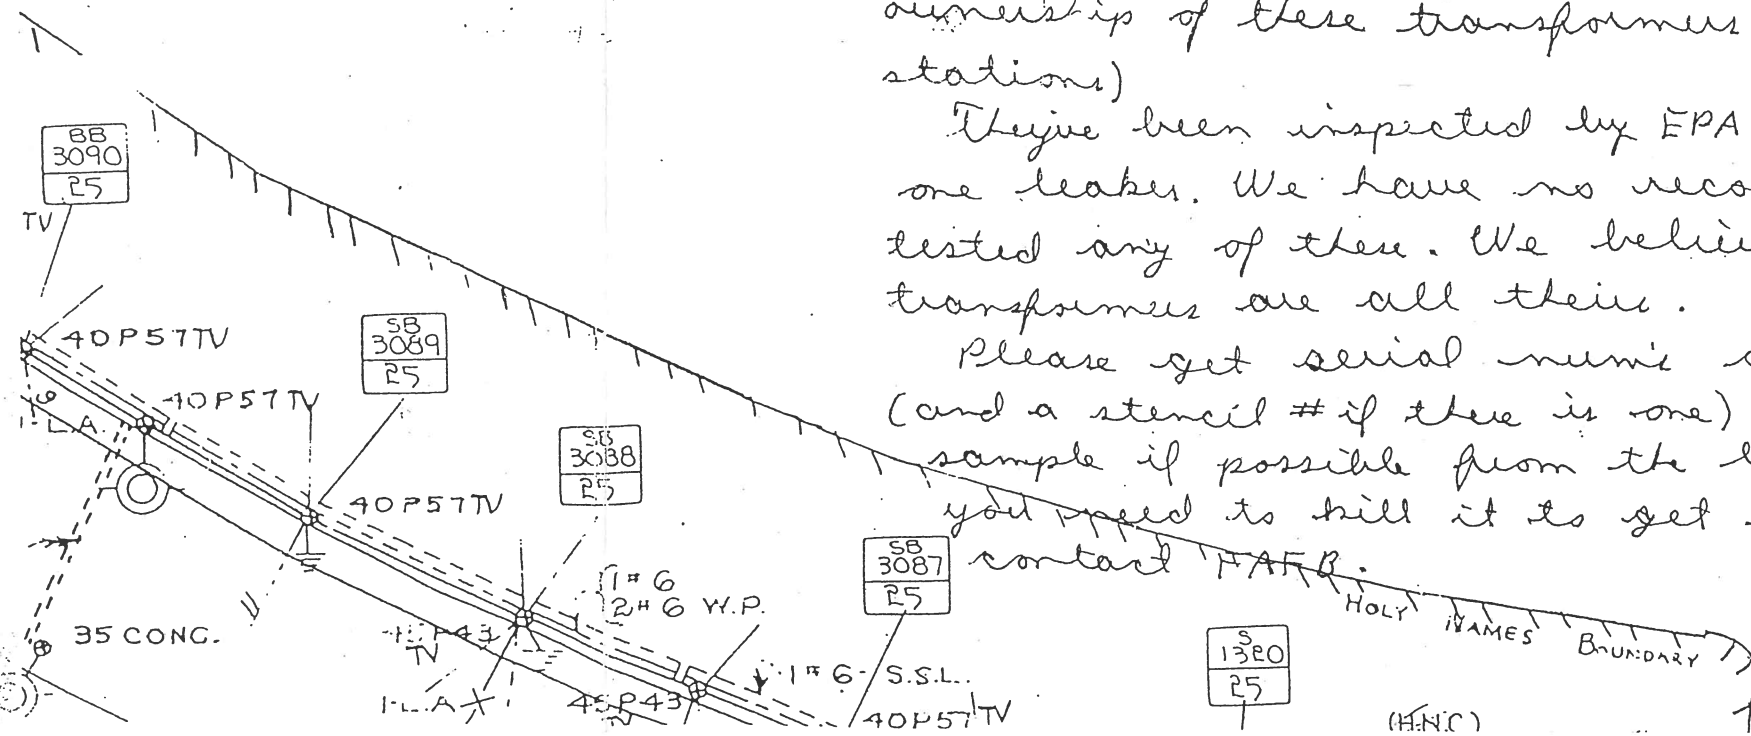 ownership of these transformers
stations)
They've been inspected by EPA
one leaker. We have no reco
tested any of these. We belie
transformers are all theirs.
Please get serial num's
(and a stencil # if there is one)
sample if possible from the
you need to kill it to get
contact FAFB.
BB
3090
25
TV
40P57TV
SB
3089
25
40P57TV
1-L.A.
SB
3088
25
40P57TV
SB
3087
25
1#6
2#6 W.P.
HOLY NAMES BOUNDARY
35 CONG.
TV
S
1320
25
1#6- S.S.L.
1-L.A.
45P43
40P57TV
(H.N.C)